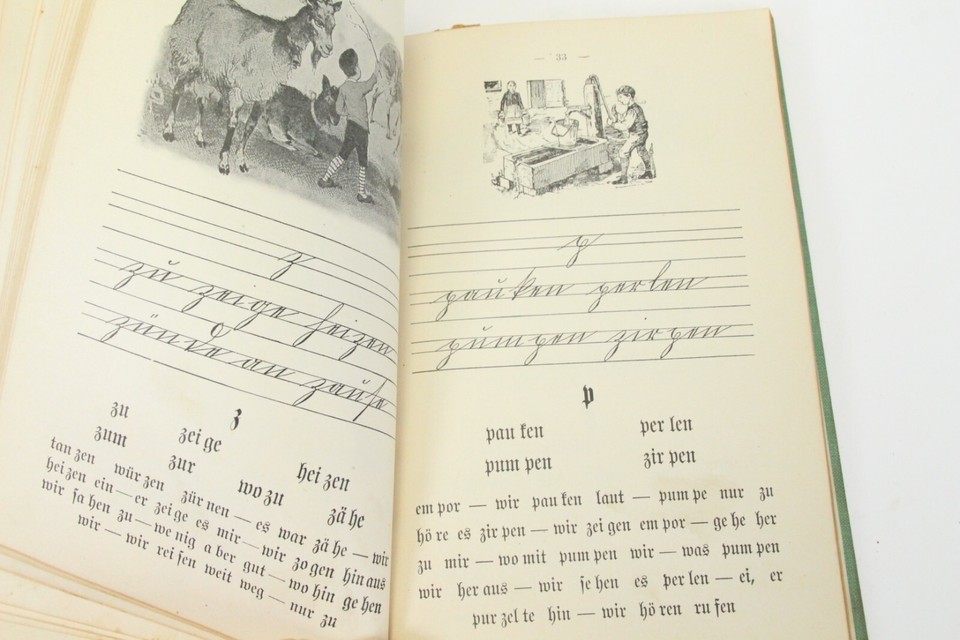 z
zu zeige heizen
zünde an zause
z
zu zei ge hei zen
zum zur wo zu zä he
tan zen wür zen zür nen — es war zä he — wir
hei zen ein — er zei ge es mir — wir zo gen hin aus
wir sa hen zu — we nig a ber gut — wo hin ge hen
wir — wir rei sen weit weg — nur zu
— 33 —
p
pauken perlen
pumpen zirpen
p
pau ken per len
pum pen zir pen
em por — wir pau ken laut — pum pe nur zu
hö re es zir pen — wir zei gen em por — ge he her
zu mir — wo mit pum pen wir — was pum pen
wir her aus — wir se hen es per len — ei, er
pur zel te hin — wir hö ren ru fen